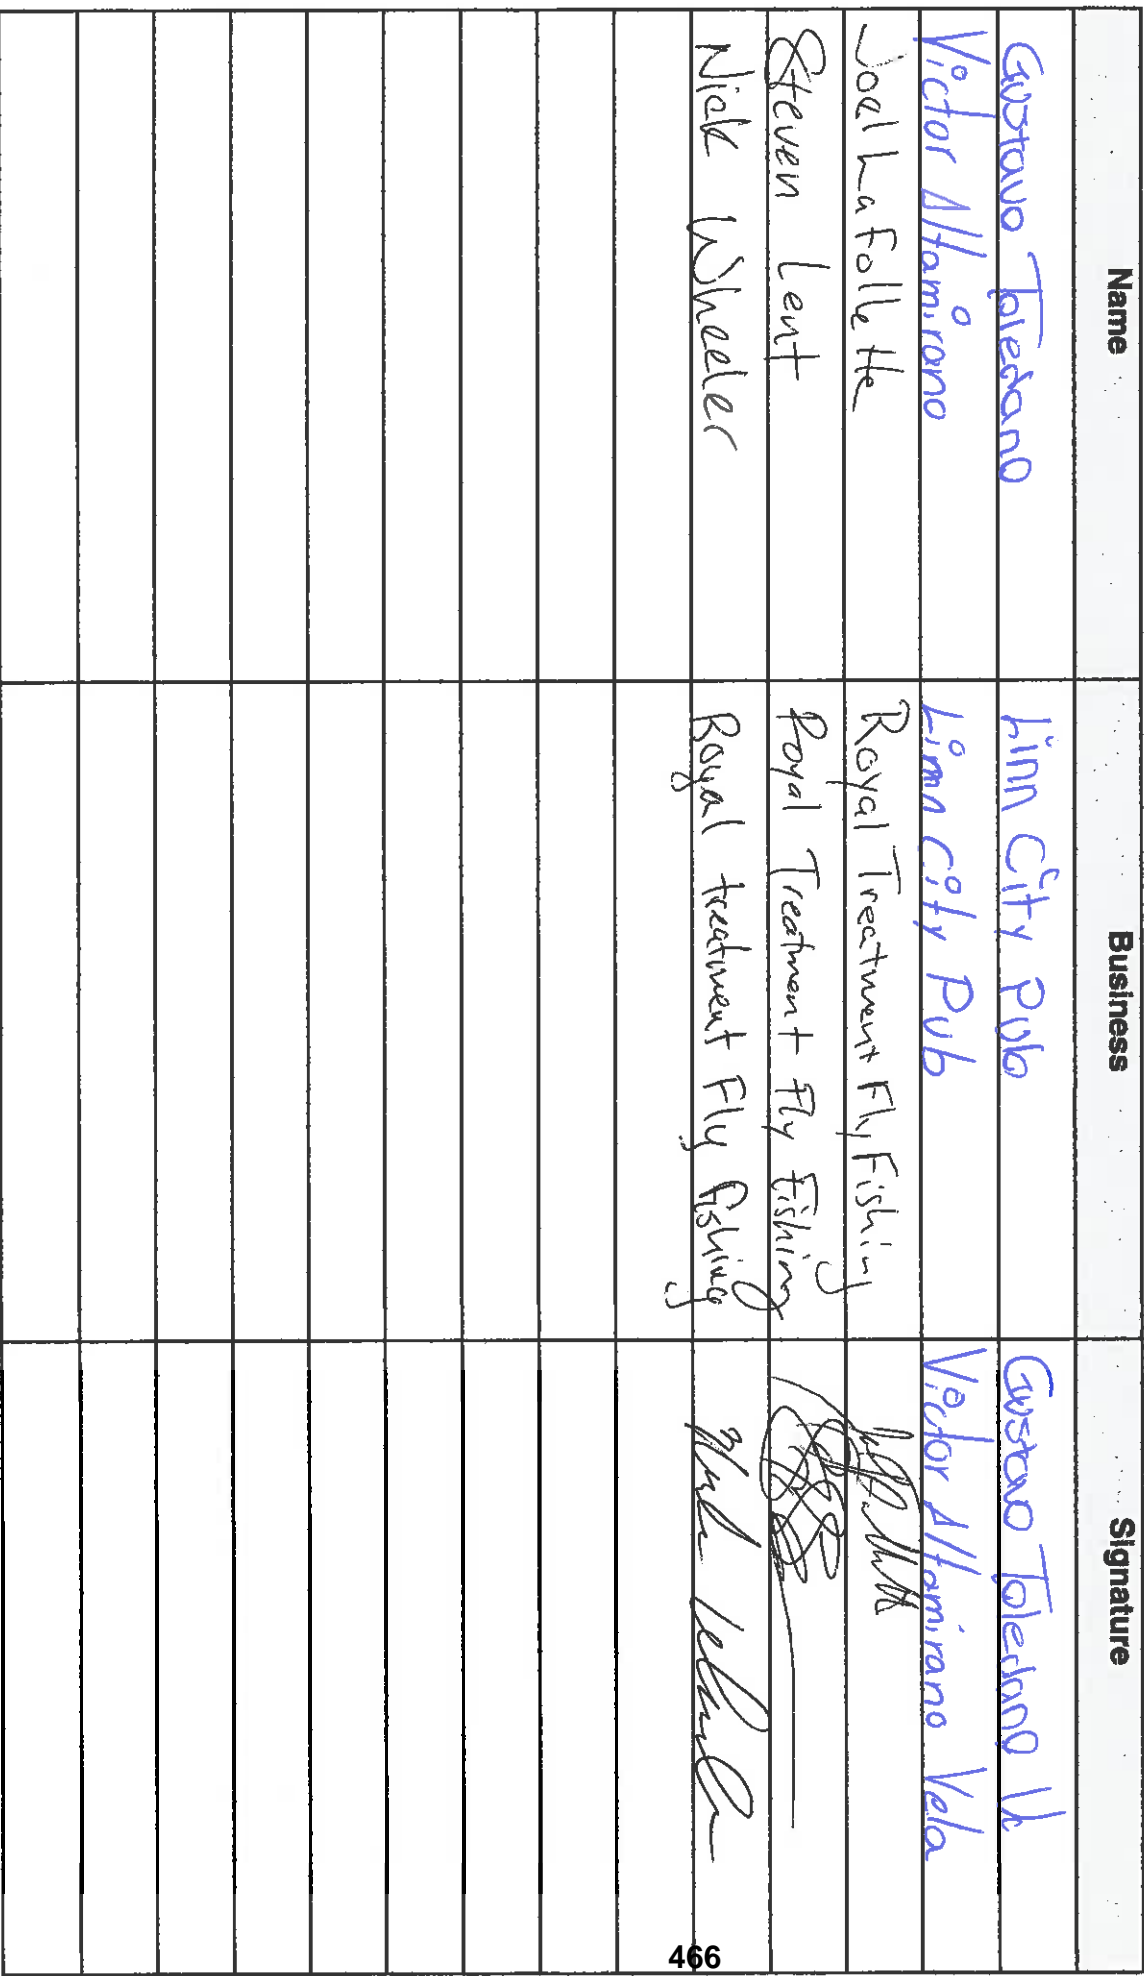 Name Business Signature
Gustavo Toledano Linn City Pub Gustavo Toledano
Victor Altamirano Linn City Pub Victor Altamirano Vela
Joel LaFollette Royal Treatment Fly Fishing
Steven Lent Royal Treatment Fly Fishing
Nick Wheeler Royal treatment Fly fishing
466